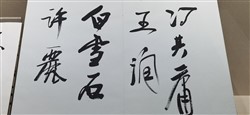 冯其庸
王询
白雪石
许麟